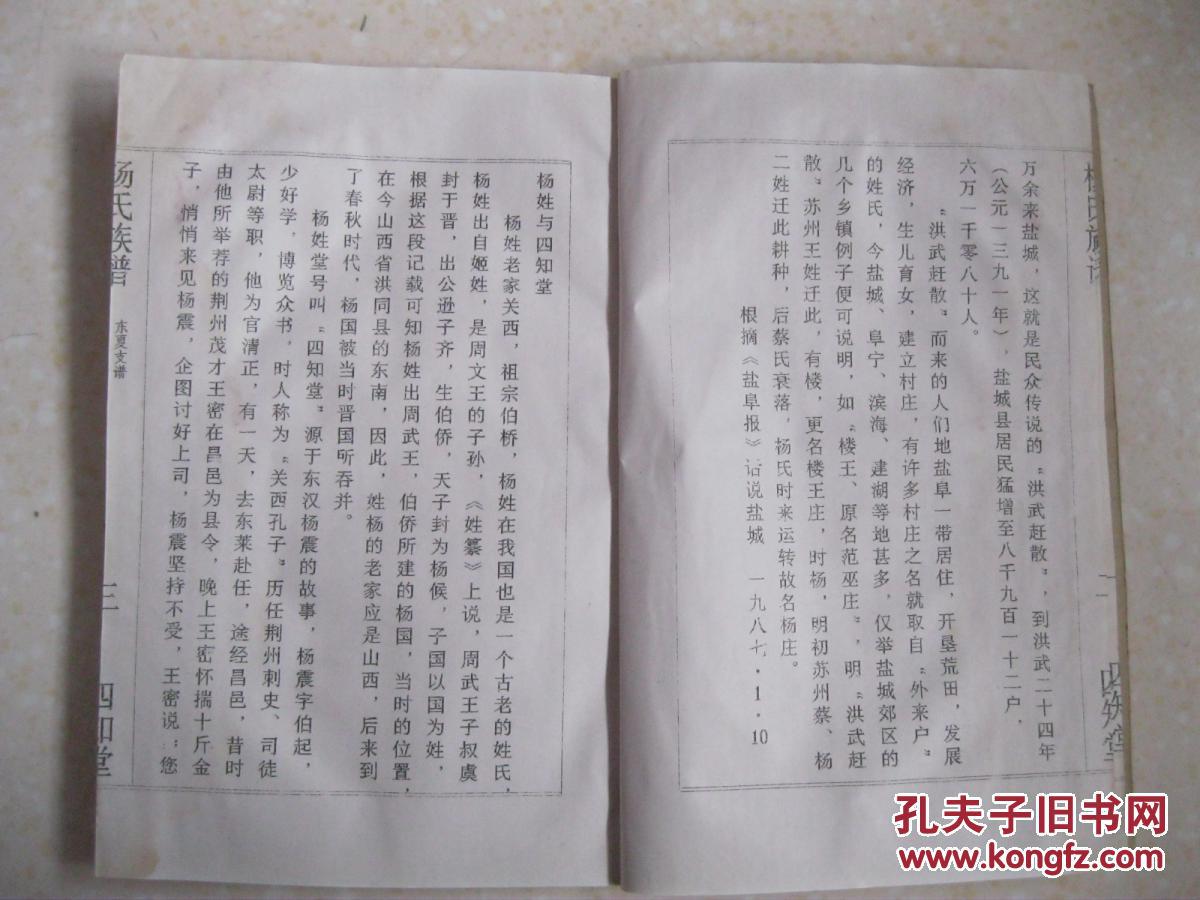 杨氏族谱
二
四知堂
万余来盐城，这就是民众传说的“洪武赶散”，到洪武二十四年
（公元一三九一年），盐城县居民猛增至八千九百一十二户，
六万一千零八十人。
“洪武赶散”而来的人们地盐阜一带居住，开垦荒田，发展
经济，生儿育女，建立村庄，有许多村庄之名就取自“外来户”
的姓氏，今盐城、阜宁、滨海、建湖等地甚多，仅举盐城郊区的
几个乡镇例子便可说明，如“楼王、原名范巫庄”，明“洪武赶
散”苏州王姓迁此，有楼，更名楼王庄，时杨，明初苏州蔡、杨
二姓迁此耕种，后蔡氏衰落，杨氏时来运转故名杨庄。
根摘《盐阜报》话说盐城　一九八七·1·10
杨姓与四知堂
杨姓老家关西，祖宗伯桥，杨姓在我国也是一个古老的姓氏，
杨姓出自姬姓，是周文王的子孙，《姓纂》上说，周武王子叔虞
封于晋，出公逊子齐，生伯侨，天子封为杨候，子国以国为姓，
根据这段记载可知杨姓出周武王，伯侨所建的杨国，当时的位置，
在今山西省洪同县的东南，因此，姓杨的老家应是山西，后来到
了春秋时代，杨国被当时晋国听吞并。
杨姓堂号叫“四知堂”源于东汉杨震的故事，杨震字伯起，
少好学，博览众书，时人称为“关西孔子”历任荆州刺史、司徒
太尉等职，他为官清正，有一天，去东莱赴任，途经昌邑，昔时
由他所举荐的荆州茂才王密在昌邑为县令，晚上王密怀揣十斤金
子，悄悄来见杨震，企图讨好上司，杨震坚持不受，王密说：您
杨氏族谱
东夏支谱
三
四知堂
孔夫子旧书网
www.kongfz.com